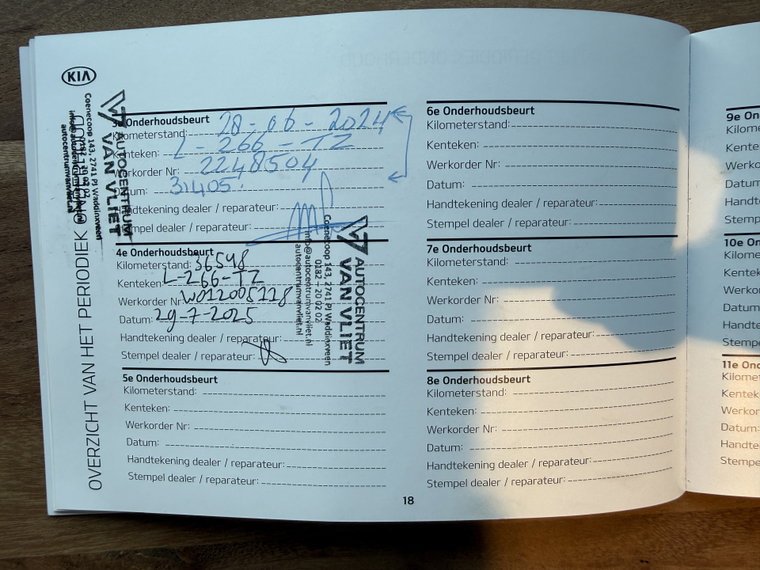 KIA
OVERZICHT VAN HET PERIODIEK
AUTOCENTRUM
VAN VLIET
Coenecoop 143, 2741 PJ Waddinxveen
autocentrumvanvliet.nl
Onderhoudsbeurt
Kilometerstand: 28-06-2024
Kenteken: L-266-TZ
Werkorder Nr: 2248504
Datum: 31405
Handtekening dealer / reparateur:
Stempel dealer / reparateur:
4e Onderhoudsbeurt
Kilometerstand: 36548
Kenteken: L-266-TZ
Werkorder Nr: W012005118
Datum: 29-7-2025
Handtekening dealer / reparateur:
Stempel dealer / reparateur:
AUTOCENTRUM
VAN VLIET
Coenecoop 143, 2741 PJ Waddinxveen
0182 - 20 02 02
info@autocentrumvanvliet.nl
autocentrumvanvliet.nl
5e Onderhoudsbeurt
Kilometerstand:
Kenteken:
Werkorder Nr:
Datum:
Handtekening dealer / reparateur:
Stempel dealer / reparateur:
6e Onderhoudsbeurt
Kilometerstand:
Kenteken:
Werkorder Nr:
Datum:
Handtekening dealer / reparateur:
Stempel dealer / reparateur:
7e Onderhoudsbeurt
Kilometerstand:
Kenteken:
Werkorder Nr:
Datum:
Handtekening dealer / reparateur:
Stempel dealer / reparateur:
8e Onderhoudsbeurt
Kilometerstand:
Kenteken:
Werkorder Nr:
Datum:
Handtekening dealer / reparateur:
Stempel dealer / reparateur:
18
9e Onder
Kilom
Kente
Werko
Datum
Handt
Stemp
10e On
Kilome
Kentek
Werkor
Datum:
Handte
Stempe
11e On
Kilome
Kenteke
Werkor
Datum:
Handte
Stempe